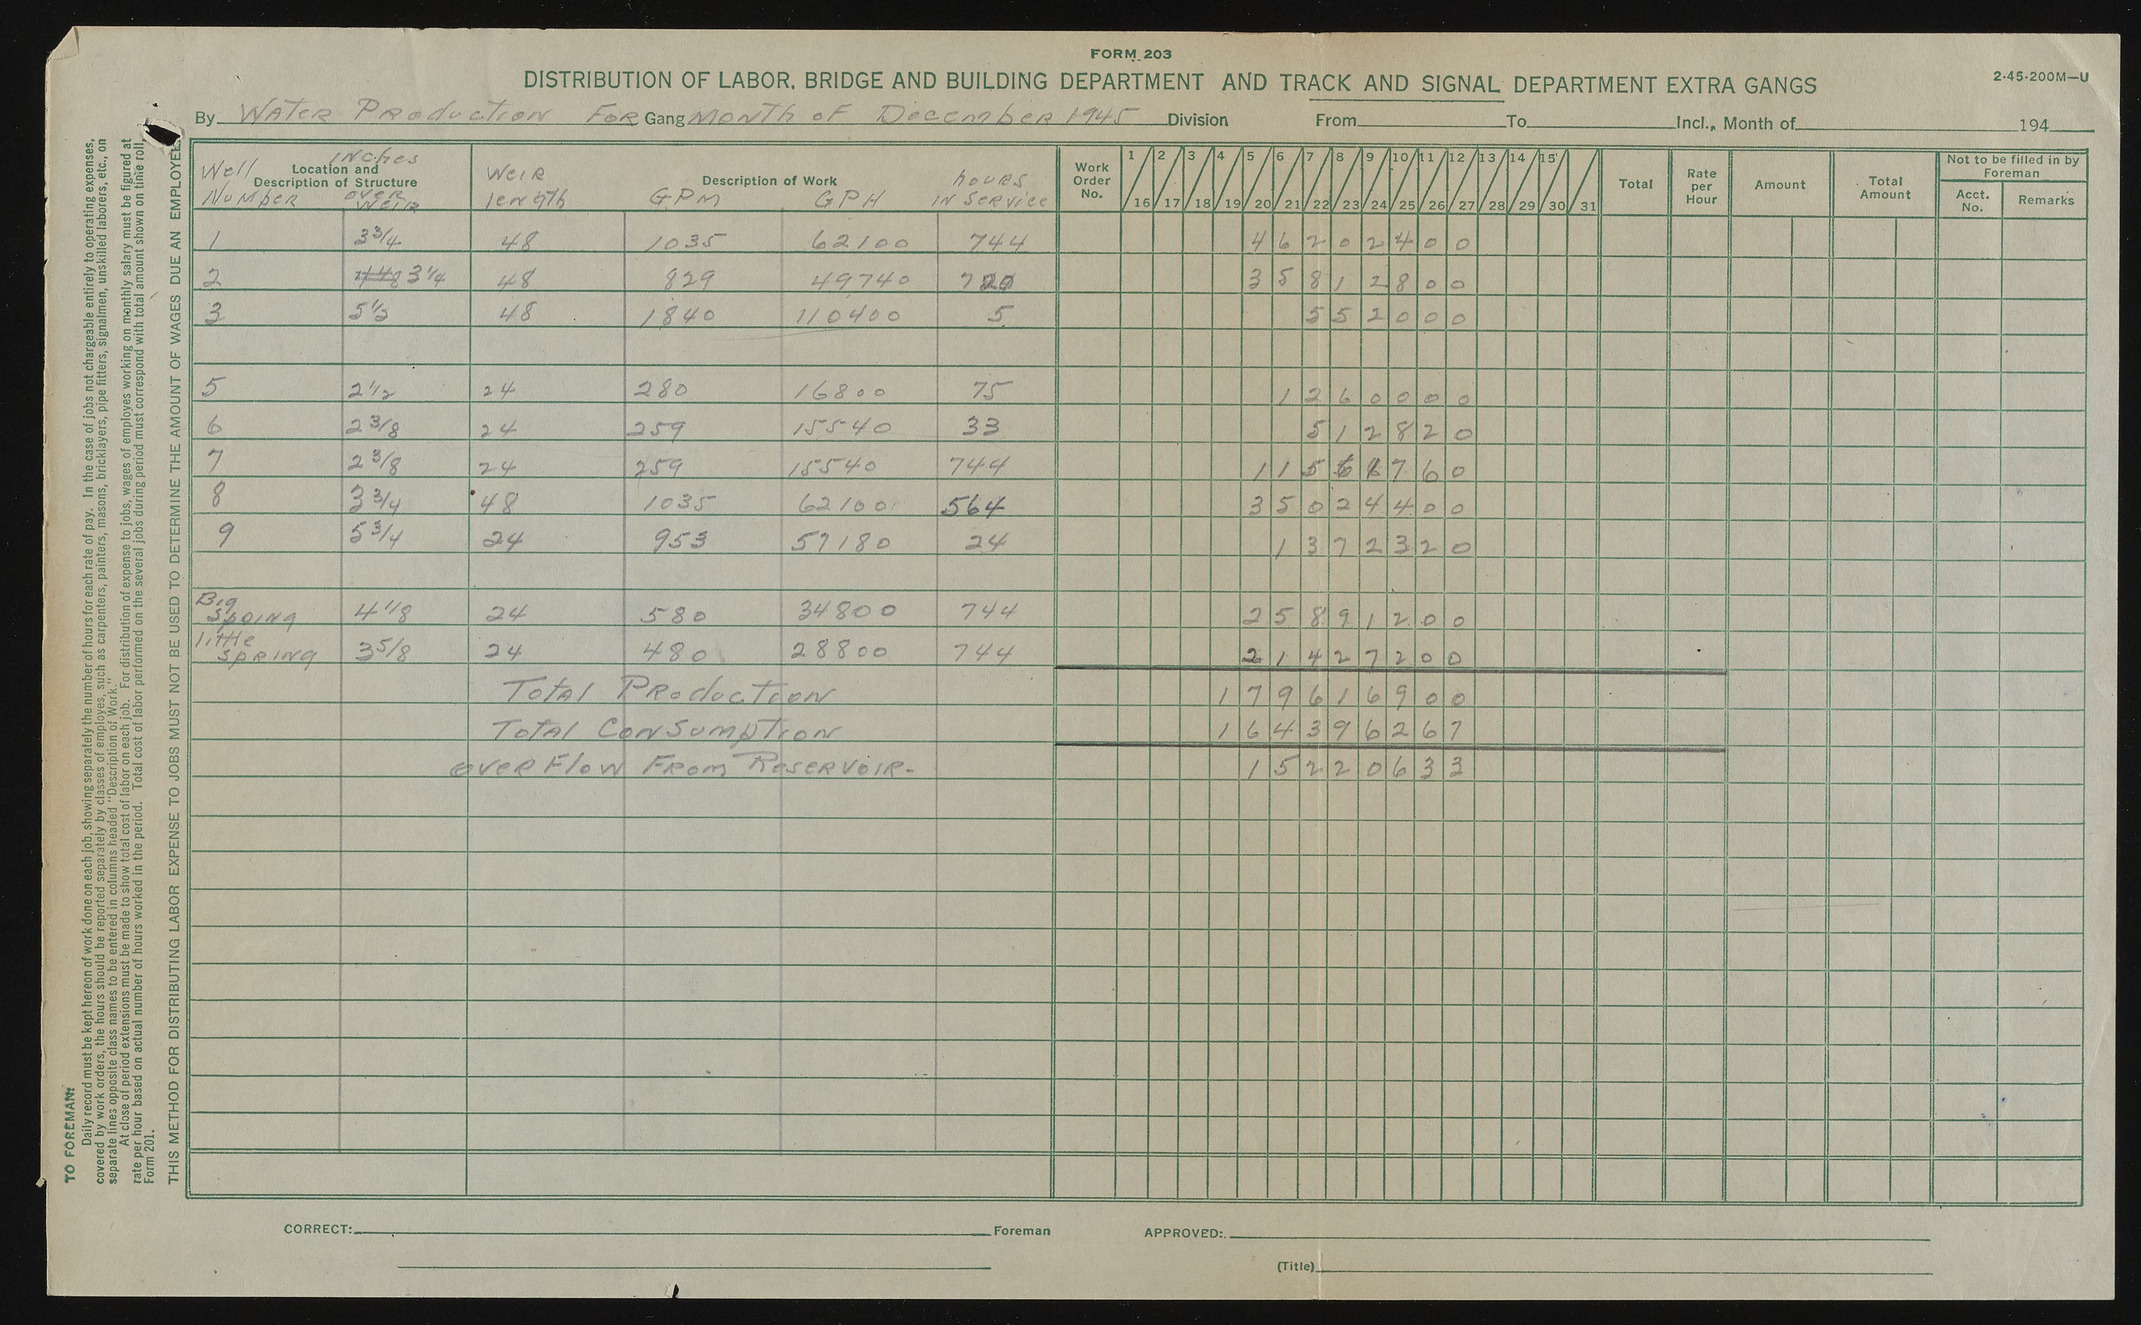 FORM 203
DISTRIBUTION OF LABOR, BRIDGE AND BUILDING DEPARTMENT AND TRACK AND SIGNAL DEPARTMENT EXTRA GANGS
2-45-200M—U
By Water Production For Gang Month of December 1945 Division From To Incl., Month of 194
Well Number Location and Description of Structure inches over Weir Weir length Description of Work GPM GPH hours in Service Work Order No. 1 2 3 4 5 6 7 8 9 10 11 12 13 14 15 Total Rate per Hour Amount Total Amount Not to be filled in by Foreman
16 17 18 19 20 21 22 23 24 25 26 27 28 29 30 31 Acct. No. Remarks
1 3 3/4 48 1035 62100 744 46202400
2 4 1/8 3 1/4 48 829 49740 720 35812800
3 5 1/2 48 1840 110400 5 552000
5 2 1/2 24 280 16800 75 1260000
6 2 3/8 24 259 15540 33 512820
7 2 3/8 24 259 15540 744 11561760
8 3 3/4 48 1035 62100 564 35024400
9 5 3/4 24 953 57180 24 1372320
Big Spring 4 1/8 24 580 34800 744 25891200
little Spring 3 5/8 24 480 28800 744 21427200
Total Production 179616900
Total Consumption 164396267
over Flow From Reservoir- 15220633
CORRECT: Foreman APPROVED:
(Title)
TO FOREMAN:
Daily record must be kept hereon of work done on each job, showing separately the number of hours for each rate of pay. In the case of jobs not chargeable entirely to operating expenses,
covered by work orders, the hours should be reported separately by classes of employes, such as carpenters, painters, masons, bricklayers, pipe fitters, signalmen, unskilled laborers, etc., on
separate lines opposite class names to be entered in columns headed "Description of Work."
At close of period extensions must be made to show total cost of labor on each job. For distribution of expense to jobs, wages of employes working on monthly salary must be figured at
rate per hour based on actual number of hours worked in the period. Total cost of labor performed on the several jobs during period must correspond with total amount shown on time roll,
Form 201.
THIS METHOD FOR DISTRIBUTING LABOR EXPENSE TO JOBS MUST NOT BE USED TO DETERMINE THE AMOUNT OF WAGES DUE AN EMPLOYEE.